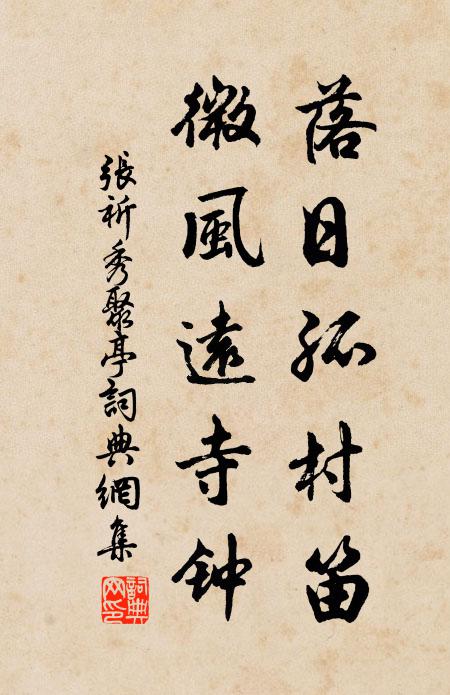 落日孤村笛
微風遠寺钟
張祈秀聚亭詞典網集
詞典网印